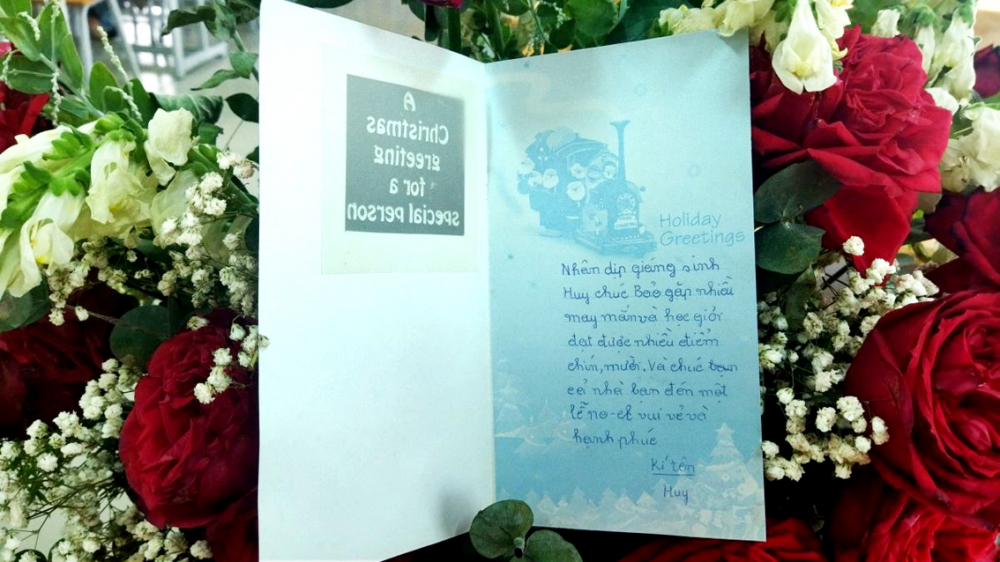 A
Christmas
greeting
for a
special person
Holiday
Greetings
Nhân dịp giáng sinh
Huy chúc Bảo gặp nhiều
may mắn và học giỏi
đạt được nhiều điểm
chín, mười. Và chúc bạn
cả nhà bạn đến một
lễ no-el vui vẻ và
hạnh phúc
Kí tên
Huy